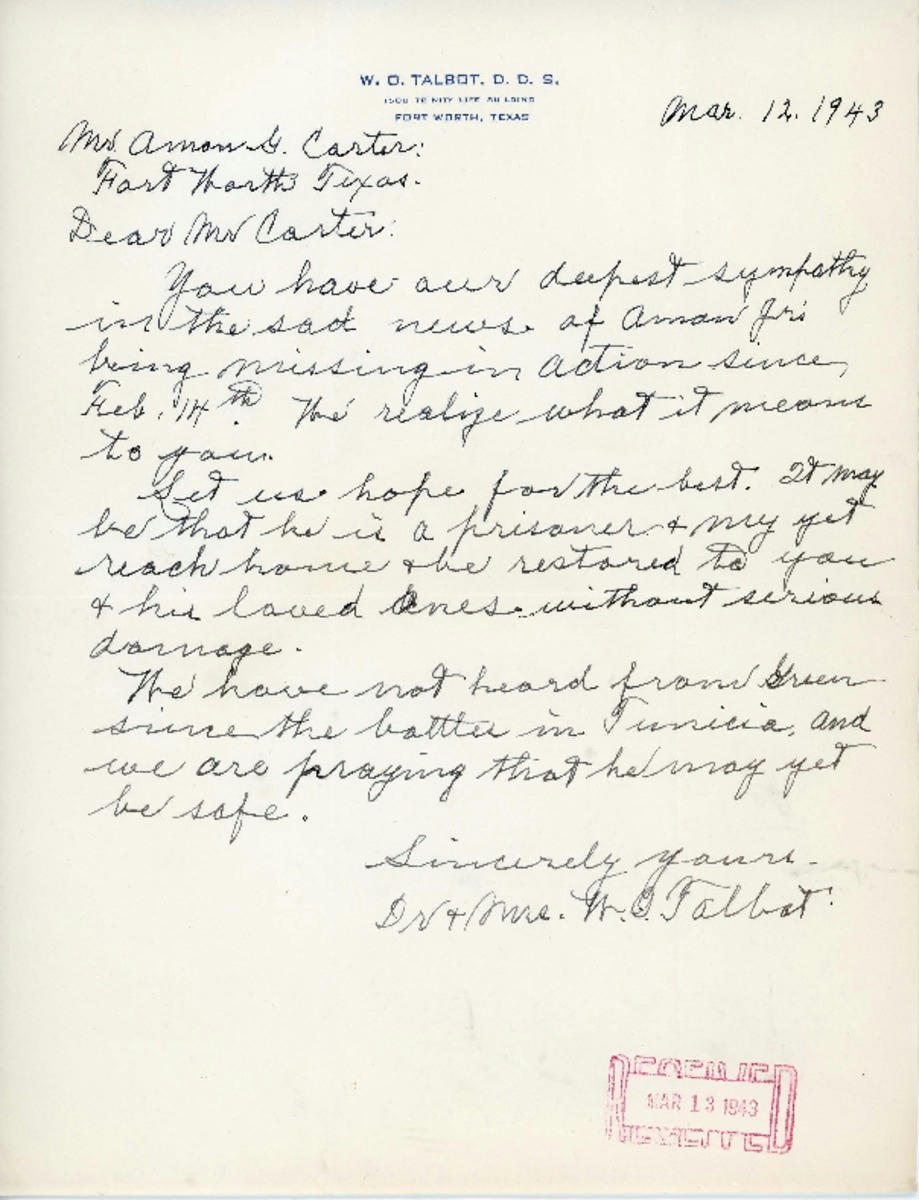 W. O. TALBOT, D. D. S.
1500 TRINITY LIFE BUILDING
FORT WORTH, TEXAS
Mar. 12, 1943
Mr. Amon G. Carter:
Fort Worth Texas.
Dear Mr Carter:
You have our deepest sympathy
in the sad news of Amon Jr's
being missing in action since
Feb. 14th. We realize what it means
to you.
Let us hope for the best. It may
be that he is a prisoner & my yet
reach home & be restored to you
& his loved Ones without serious
damage.
We have not heard from Green
since the battle in Tunicia, and
we are praying that he may yet
be safe.
Sincerely yours.
Dr & Mrs. W. O. Talbot
RECEIVED
MAR 13 1943